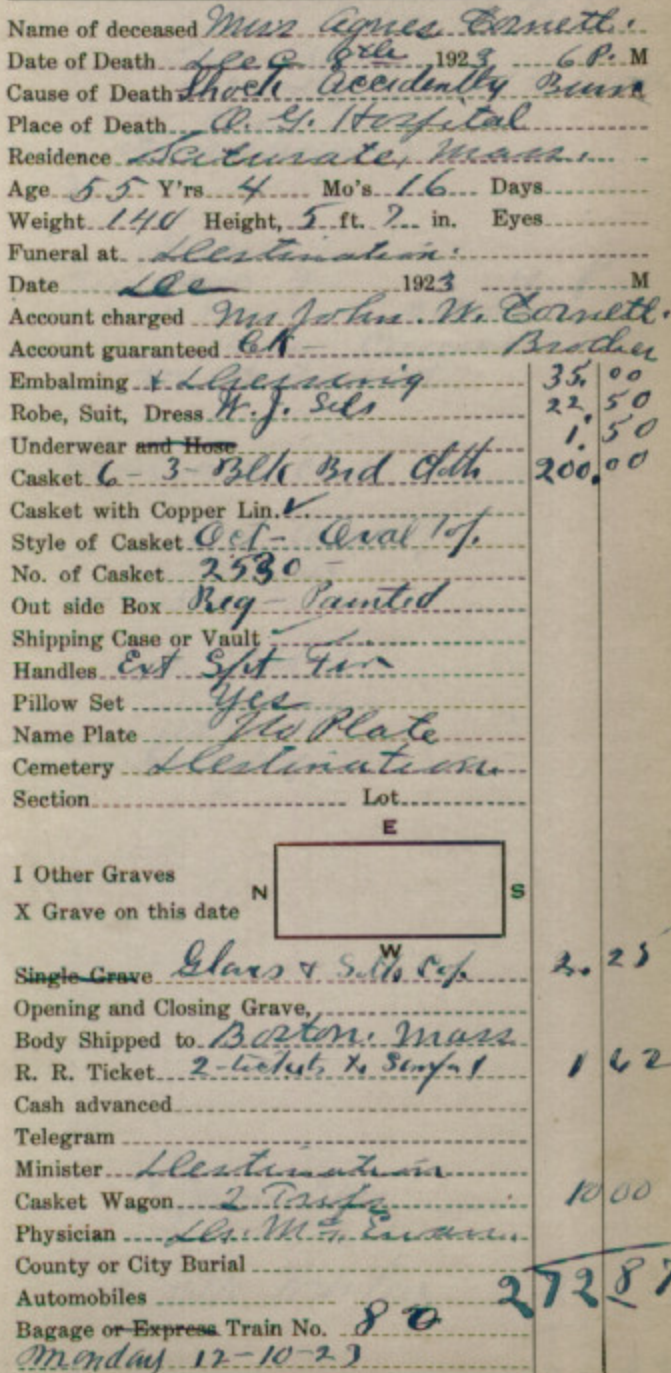 Name of deceased Miss Agnes Cornett.
Date of Death Dec 8th 1923 6 P. M
Cause of Death Shock Accidently Burn
Place of Death O. G. Hospital
Residence Scituate, Mass.
Age 55 Y'rs 4 Mo's 16 Days
Weight 140 Height, 5 ft. 7 in. Eyes
Funeral at Destination.
Date Dec 1923 M
Account charged Mr John. W. Cornett.
Account guaranteed OK - Brother
Embalming & Dressing 35.00
Robe, Suit, Dress W. J. Sils 22.50
Underwear and Hose 1.50
Casket 6-3- Blk Brd Cloth 200.00
Casket with Copper Lin. ✓
Style of Casket Oct- Oval Top.
No. of Casket 2530 -
Out side Box Reg - Painted
Shipping Case or Vault
Handles Ext
Pillow Set Yes
Name Plate No Plate
Cemetery Destination
Section Lot
E
I Other Graves
N S
X Grave on this date
W
Single Grave Glass & 2.25
Opening and Closing Grave,
Body Shipped to Boston. Mass
R. R. Ticket 2-tickets to 1 62
Cash advanced
Telegram
Minister Destination
Casket Wagon 2 Trips 10 00
Physician Dr. Mc Ewan
County or City Burial
272 87
Automobiles
Bagage or Express Train No. 80
Monday 12-10-23